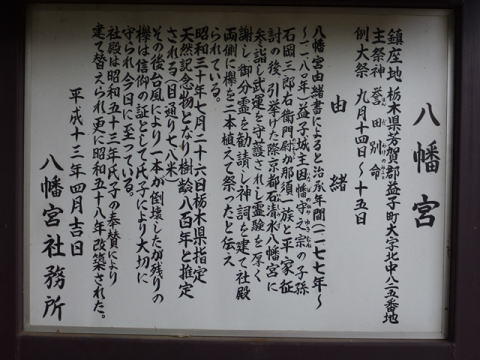 八幡宮
鎮座地 栃木県芳賀郡益子町大字北中八二五番地
主祭神 誉田別命
例大祭 九月十四日〜十五日
由緒
八幡宮由緒書によると治承年間(一一七七年〜
一一八〇年)益子城主因幡守之宗の子孫
石岡三郎右衛門尉が那須一族と平家征
討の後、引挙げた際京都石清水八幡宮に
参詣し武運を守護されし霊験を厚く
謝し御分霊を勧請し神詞を建て社殿
両側に欅を二本植えて祭ったと伝え
られている。
昭和三十年七月二十六日栃木県指定
天然記念物となり樹齢八百年と推定
される(目通り七、八米)
その後台風により一本が倒壊したが残りの
欅は信仰の証として氏子により大切に
守られ今日に至っている。
社殿は昭和五十三年氏子の奉賛により
建て替えられ更に昭和五十八年改築された。
平成十三年四月吉日
八幡宮社務所